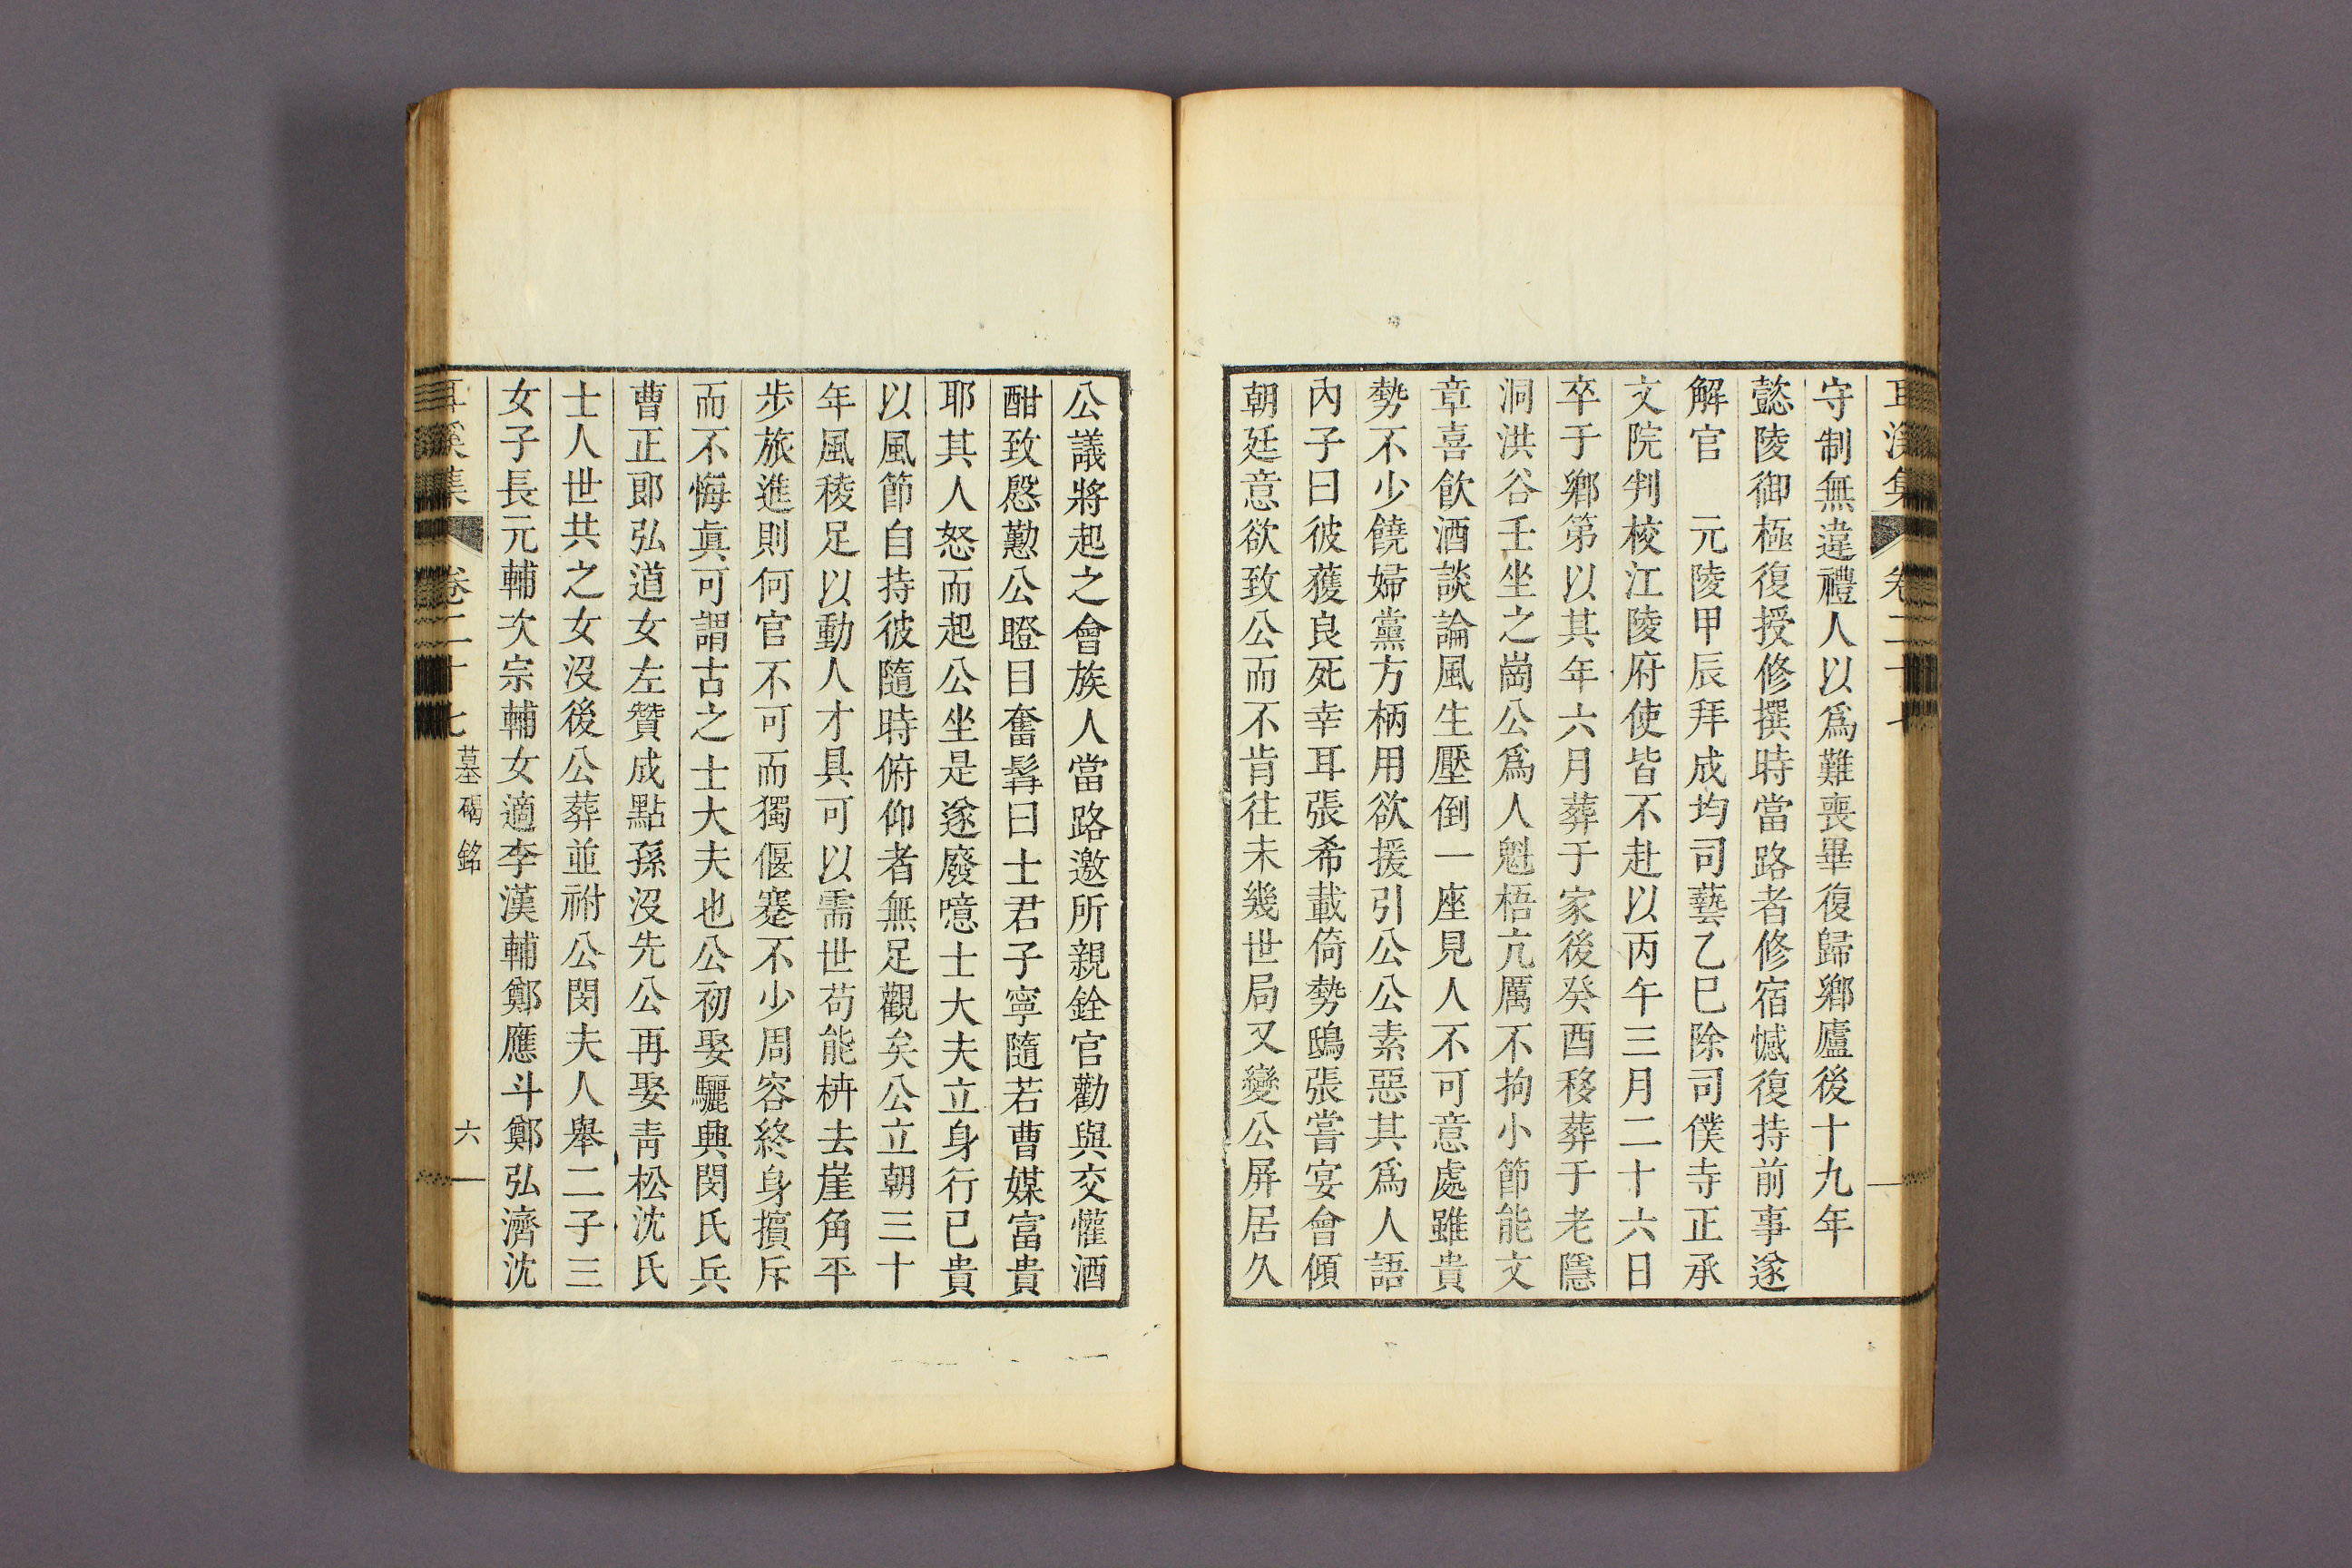 耳溪集 卷二十七
守制無違禮人以爲難喪畢復歸鄉廬後十九年
懿陵御極復授修撰時當路者修宿憾復持前事遂
解官 元陵甲辰拜成均司藝乙巳除司僕寺正承
文院判校江陵府使皆不赴以丙午三月二十六日
卒于鄉第以其年六月葬于家後癸酉移葬于老隱
洞洪谷壬坐之崗公爲人魁梧亢厲不拘小節能文
章喜飮酒談論風生壓倒一座見人不可意處雖貴
勢不少饒婦黨方柄用欲援引公公素惡其爲人語
內子曰彼獲良死幸耳張希載倚勢鴟張嘗宴會傾
朝廷意欲致公而不肯往未幾世局又變公屏居久
公議將起之會族人當路邀所親銓官勸與交懽酒
酣致慇懃公瞪目奮髥曰士君子寧隨若曹媒富貴
耶其人怒而起公坐是遂廢噫士大夫立身行已貴
以風節自持彼隨時俯仰者無足觀矣公立朝三十
年風稜足以動人才具可以需世苟能枿去崖角平
步旅進則何官不可而獨偃蹇不少周容終身擯斥
而不悔眞可謂古之士大夫也公初娶驪興閔氏兵
曹正郞弘道女左贊成點孫沒先公再娶靑松沈氏
士人世共之女沒後公葬並祔公閔夫人擧二子三
女子長元輔次宗輔女適李漢輔鄭應斗鄭弘濟沈
耳溪集 卷二十七 墓碣銘 六